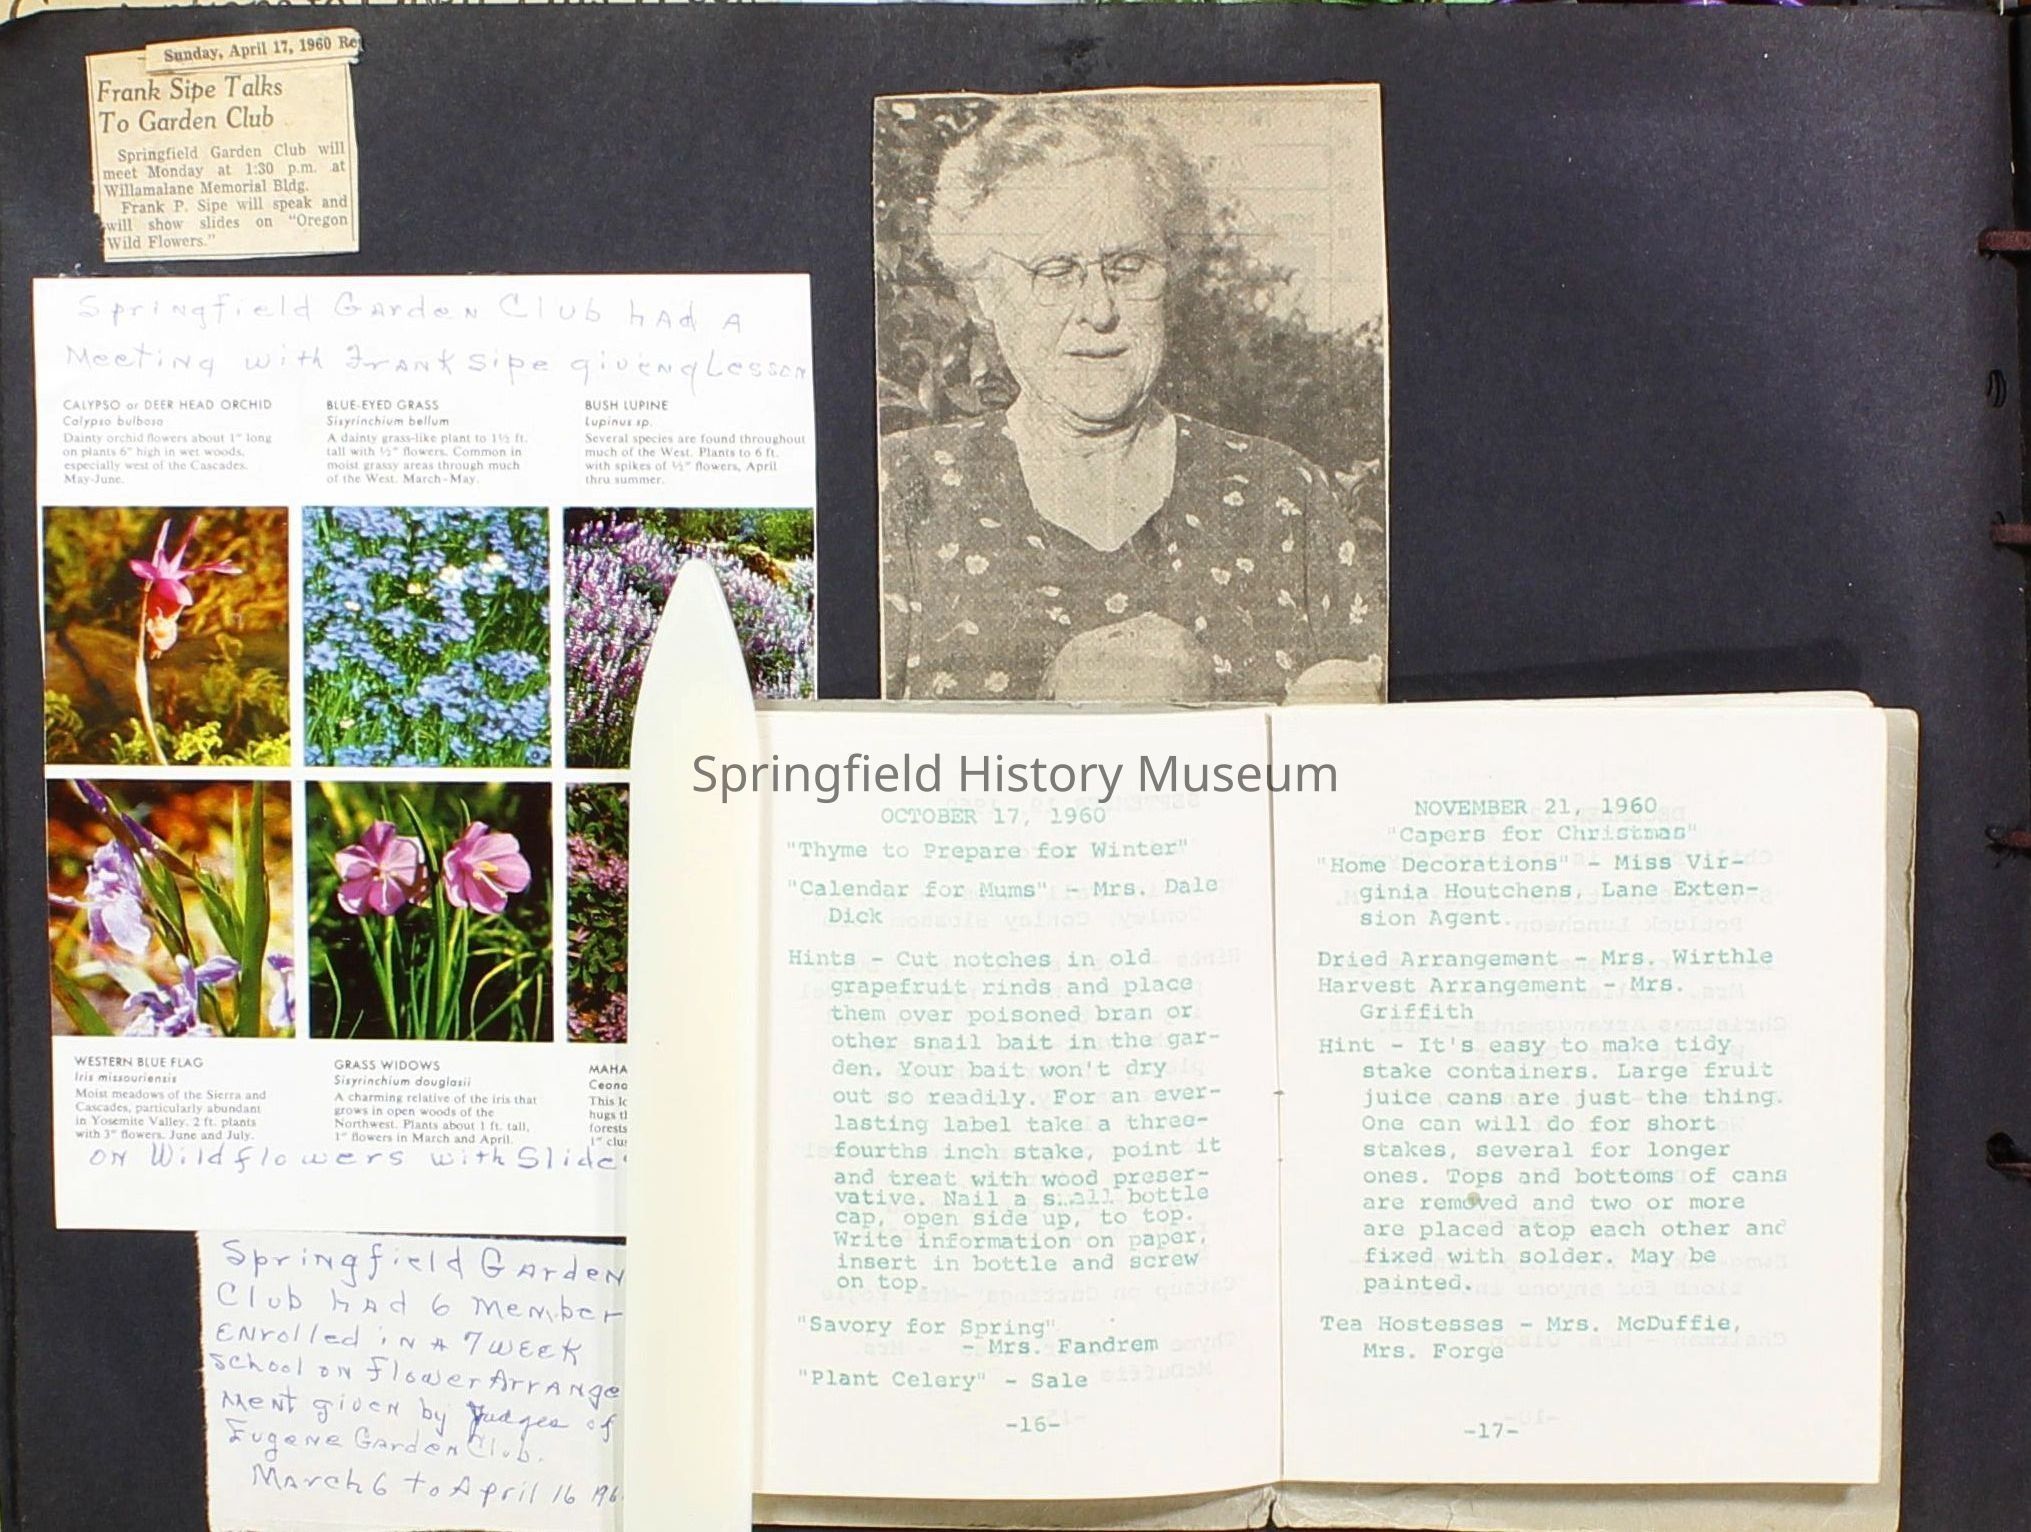 Sunday, April 17, 1960
Frank Sipe Talks
To Garden Club
Springfield Garden Club will
meet Monday at 1:30 p.m. at
Willamalane Memorial Bldg.
Frank P. Sipe will speak and
will show slides on "Oregon
Wild Flowers."
Springfield Garden Club had a
Meeting with Frank Sipe giveng Lesson
CALYPSO or DEER HEAD ORCHID
Calypso bulbosa
Dainty orchid flowers about 1" long
on plants 6" high in wet woods,
especially west of the Cascades.
May-June.
BLUE-EYED GRASS
Sisyrinchium bellum
A dainty grass-like plant to 1½ ft.
tall with ½" flowers. Common in
moist grassy areas through much
of the West. March-May.
BUSH LUPINE
Lupinus sp.
Several species are found throughout
much of the West. Plants to 6 ft.
with spikes of ½" flowers, April
thru summer.
WESTERN BLUE FLAG
Iris missouriensis
Moist meadows of the Sierra and
Cascades, particularly abundant
in Yosemite Valley. 2 ft. plants
with 3" flowers. June and July.
GRASS WIDOWS
Sisyrinchium douglasii
A charming relative of the iris that
grows in open woods of the
Northwest. Plants about 1 ft. tall,
1" flowers in March and April.
MAHA
Ceano
This lo
hugs tl
forests
1" clus
on Wildflowers with Slide
Springfield Garden
Club had 6 member
Enrolled in a 7 week
School on Flower Arrange
ment given by Judges of
Eugene Garden Club.
March 6 to April 16 196
Springfield History Museum
OCTOBER 17, 1960
"Thyme to Prepare for Winter"
"Calendar for Mums" - Mrs. Dale
Dick
Hints - Cut notches in old
grapefruit rinds and place
them over poisoned bran or
other snail bait in the gar-
den. Your bait won't dry
out so readily. For an ever-
lasting label take a three-
fourths inch stake, point it
and treat with wood preser-
vative. Nail a small bottle
cap, open side up, to top.
Write information on paper,
insert in bottle and screw
on top.
"Savory for Spring"
- Mrs. Fandrem
"Plant Celery" - Sale
-16-
NOVEMBER 21, 1960
"Capers for Christmas"
"Home Decorations" - Miss Vir-
ginia Houtchens, Lane Exten-
sion Agent.
Dried Arrangement - Mrs. Wirthle
Harvest Arrangement - Mrs.
Griffith
Hint - It's easy to make tidy
stake containers. Large fruit
juice cans are just the thing.
One can will do for short
stakes, several for longer
ones. Tops and bottoms of cans
are removed and two or more
are placed atop each other and
fixed with solder. May be
painted.
Tea Hostesses - Mrs. McDuffie,
Mrs. Forge
-17-